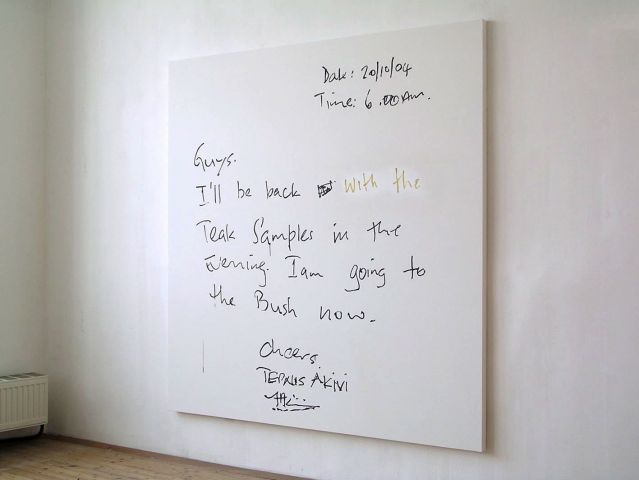 Date: 20/10/04
Time: 6.00 Am.
Guys.
I'll be back with the
Teak Samples in the
Evening. I am going to
the Bush now.
Cheers.
AKivi